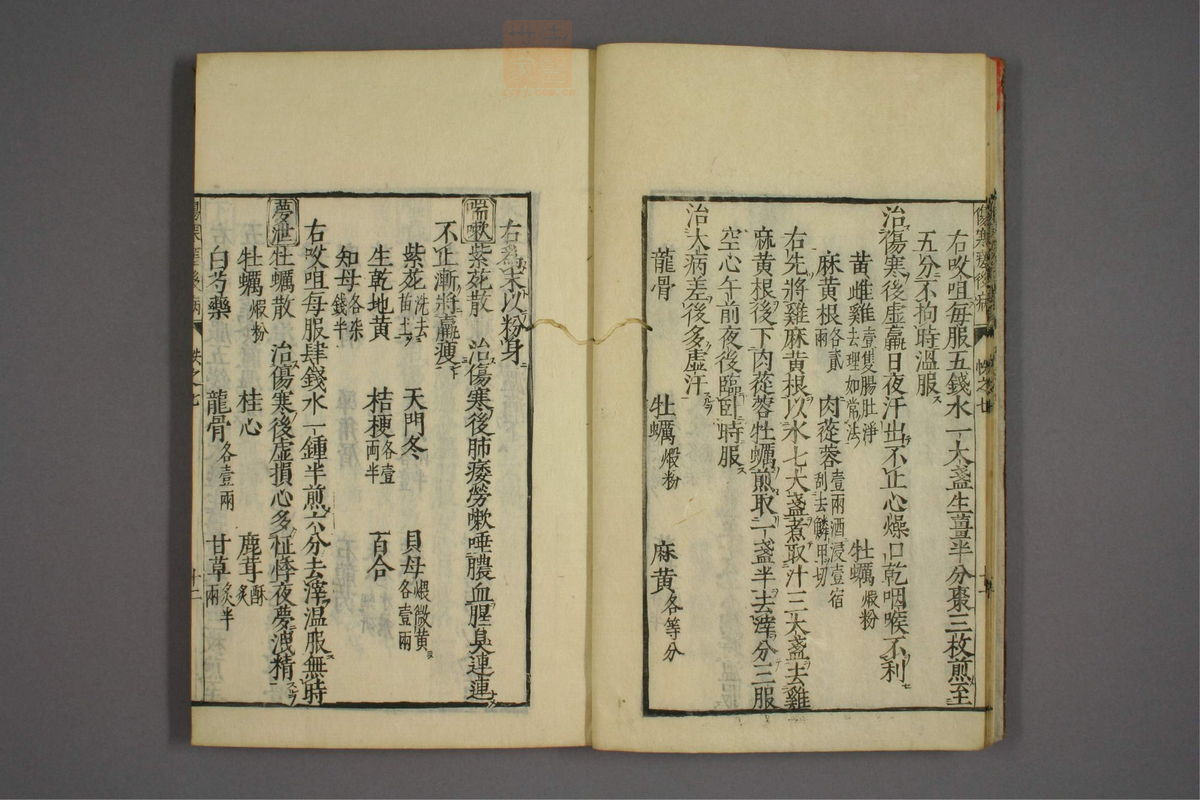 傷寒瘥後病 帙之七 十一
右㕮咀每服五錢水一大盞生薑半分棗三枚煎至
五分不拘時溫服
治傷寒後虛羸日夜汗出不止心燥口乾咽喉不利
黃雌雞壹隻腸肚淨去理如常法 牡蠣煅粉
麻黃根各貳兩 肉蓯蓉壹兩酒浸壹宿刮去鱗甲切
右先將雞麻黃根以水七大盞煮取汁三大盞去雞
麻黃根後下肉蓯蓉牡蠣煎取一盞半去滓分三服
空心午前夜後臨臥時服
治大病差後多虛汗
龍骨 牡蠣煅粉 麻黃各等分
右為末以粉身
喘嗽 紫菀散 治傷寒後肺痿勞嗽唾膿血腥臭連連
不止漸將羸瘦
紫菀洗去苗土 天門冬 貝母煨微黃各壹兩
生乾地黃 桔梗各壹兩半 百合
知母各柒錢半
右㕮咀每服肆錢水一鍾半煎六分去滓溫服無時
夢泄 牡蠣散 治傷寒後虛損心多怔悸夜夢洩精
牡蠣煅粉 桂心 鹿茸酥炙
白芍藥 龍骨各壹兩 甘草炙半兩
傷寒瘥後病 帙之七 十二